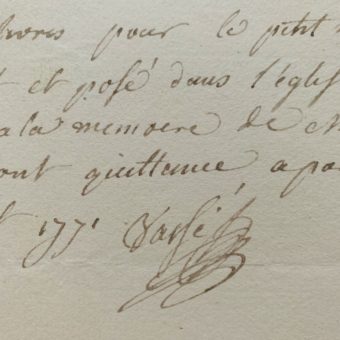 livres pour le petit
et posé dans l'églis
a la memoire de
ont quittance a pa
1771 Vassé